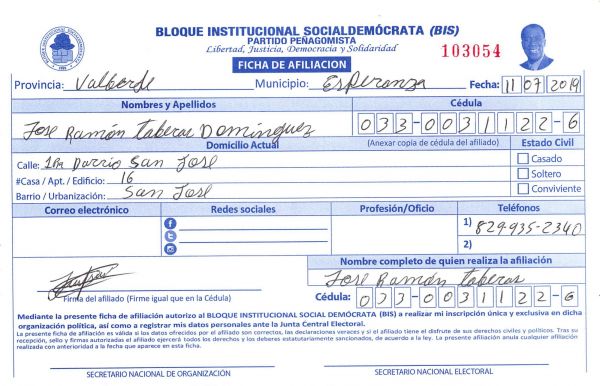 BLOQUE INSTITUCIONAL SOCIALDEMÓCRATA (BIS)
PARTIDO PEÑAGOMISTA
Libertad, Justicia, Democracia y Solidaridad
103054
FICHA DE AFILIACION
Provincia: Valberde Municipio: Esperanza Fecha: 11 07 2019
Nombres y Apellidos Cédula
Jose Ramón taberas Domínguez 033-0031122-6
Domicilio Actual (Anexar copia de cédula del afiliado) Estado Civil
Calle: 1ra Dario San Jose Casado
#Casa / Apt. / Edificio: 16 Soltero
Barrio / Urbanización: San Jose Conviviente
Correo electrónico Redes sociales Profesión/Oficio Teléfonos
1) 829-935-2340
2)
Nombre completo de quien realiza la afiliación
Jose Ramón taberas
Firma del afiliado (Firme igual que en la Cédula) Cédula: 033-0031122-6
Mediante la presente ficha de afiliación autorizo al BLOQUE INSTITUCIONAL SOCIAL DEMÓCRATA (BIS) a realizar mi inscripción única y exclusiva en dicha
organización política, así como a registrar mis datos personales ante la Junta Central Electoral.
La presente ficha de afiliación es válida si los datos ofrecidos por el afiliado son correctos, las declaraciones veraces y si el afiliado tiene el disfrute de sus derechos civiles y políticos. Tras su
recepción, sello y firmas autorizadas el afiliado ejercerá todos los derechos y los deberes estatutariamente sancionados, de acuerdo a la ley. La presente afiliación anula cualquier afiliación
realizada con anterioridad a la fecha que aparece en esta ficha.
SECRETARIO NACIONAL DE ORGANIZACIÓN SECRETARIO NACIONAL ELECTORAL